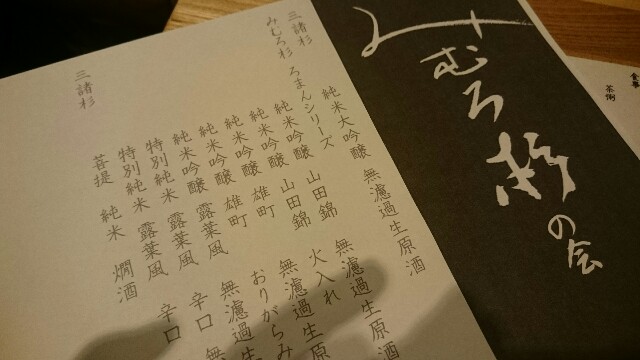 みむろ杉の会
三諸杉 純米大吟醸 無濾過生原酒
みむろ杉 ろまんシリーズ
純米吟醸 山田錦 無濾過生原酒
純米吟醸 山田錦 火入れ
純米吟醸 雄町 無濾過生原
純米吟醸 雄町 おりがらみ
純米吟醸 露葉風 無濾過生
特別純米 露葉風 辛口 無
特別純米 露葉風 辛口
三諸杉
菩提 純米 燗酒